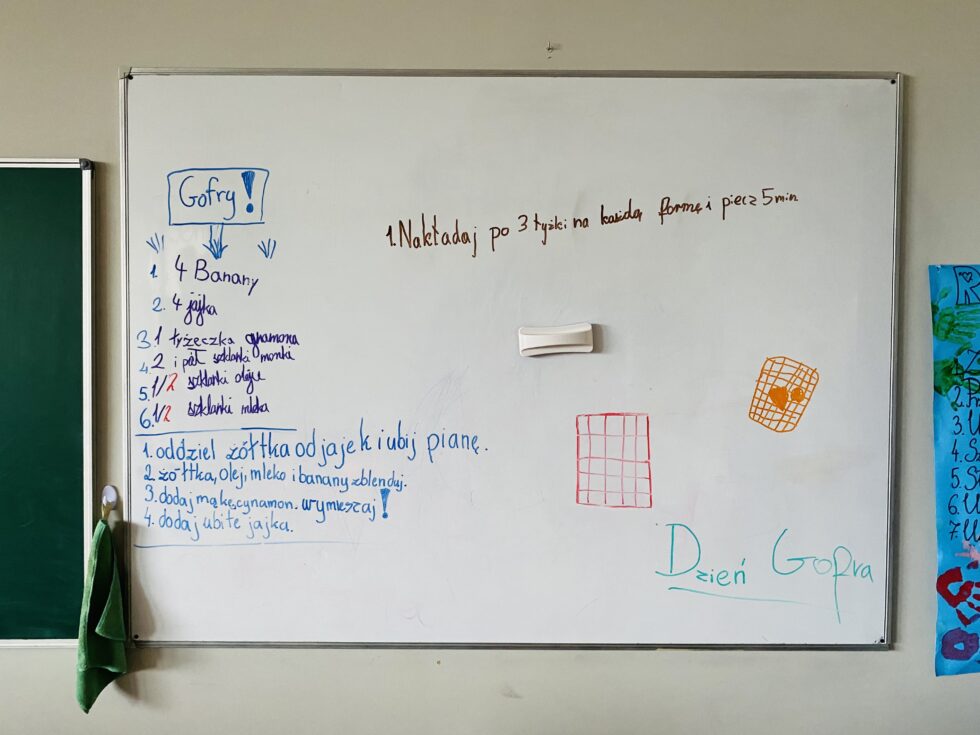 Gofry!
1. 4 Banany
2. 4 jajka
3. 1 łyżeczka cynamona
4. 2 i pół szklanki monki
5. 1/2 szklanki oleju
6. 1/2 szklanki mleka
1. oddziel żółtka od jajek i ubij pianę.
2. żółtka, olej, mleko i banany zblenduj.
3. dodaj mąkę, cynamon. wymieszaj!
4. dodaj ubite jajka.
1. Nakładaj po 3 łyżki na każdą formę i piecz 5 min
Dzień Gofra
R
2.
3. U
4. Sz
5. Sł
6. U
7. U